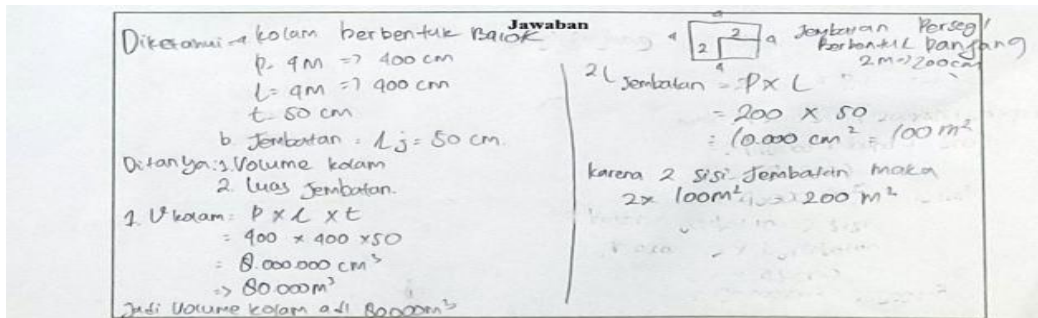 Jawaban
Diketahui → kolam berbentuk Balok
p = 4m => 400 cm
l = 4m => 400 cm
t = 50 cm
b. Jembatan = lj = 50 cm.
Ditanya: 1. Volume kolam
2. luas Jembatan.
1. V kolam = P x L x t
= 400 x 400 x 50
= 8.000.000 cm³
=> 80.000 m³
Jadi Volume kolam adl 80000m³
a
4 2 a
2
4
Jembatan Persegi
berbentuk panjang
2m => 200cm
2 L Jembatan = P x L
= 200 x 50
= 10.000 cm² = 100 m²
karena 2 sisi Jembatan maka
2x 100m² => 200 m²